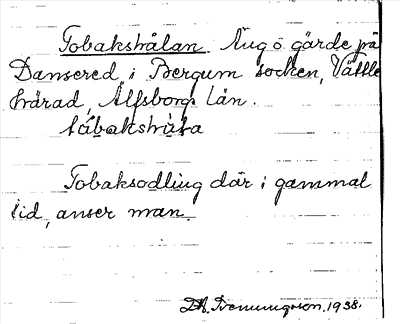 Tobakshålan. Äng o gärde på
Dansered, i Bergum socken, Vättle
härad, Älfsborgs län.
Tobaksodling där i gammal
tid, anser man.
1938.